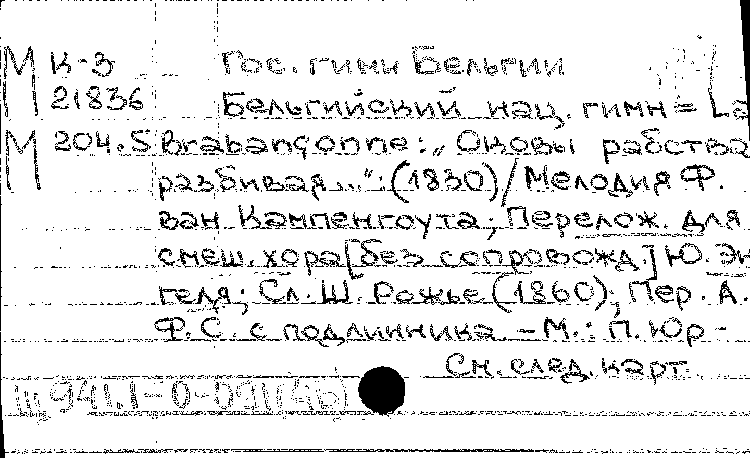 М К-3 Гос. гимн Бельгии
21836 Бельгийский нац. гимн = La
М 204.5 Brabançonne: „Оковы рабства
разбивая...": (1830) / Мелодия Ф.
ван Кампенгоута; Перелож. для
смеш. хора [без сопровожд.] Ю. Эн
геля; Сл. Ш. Рожье (1860); Пер. А.
Ф. С. с подлинника. - М.: П. Юр-
См. след. карт.
Щ941.1-0-091(4б)